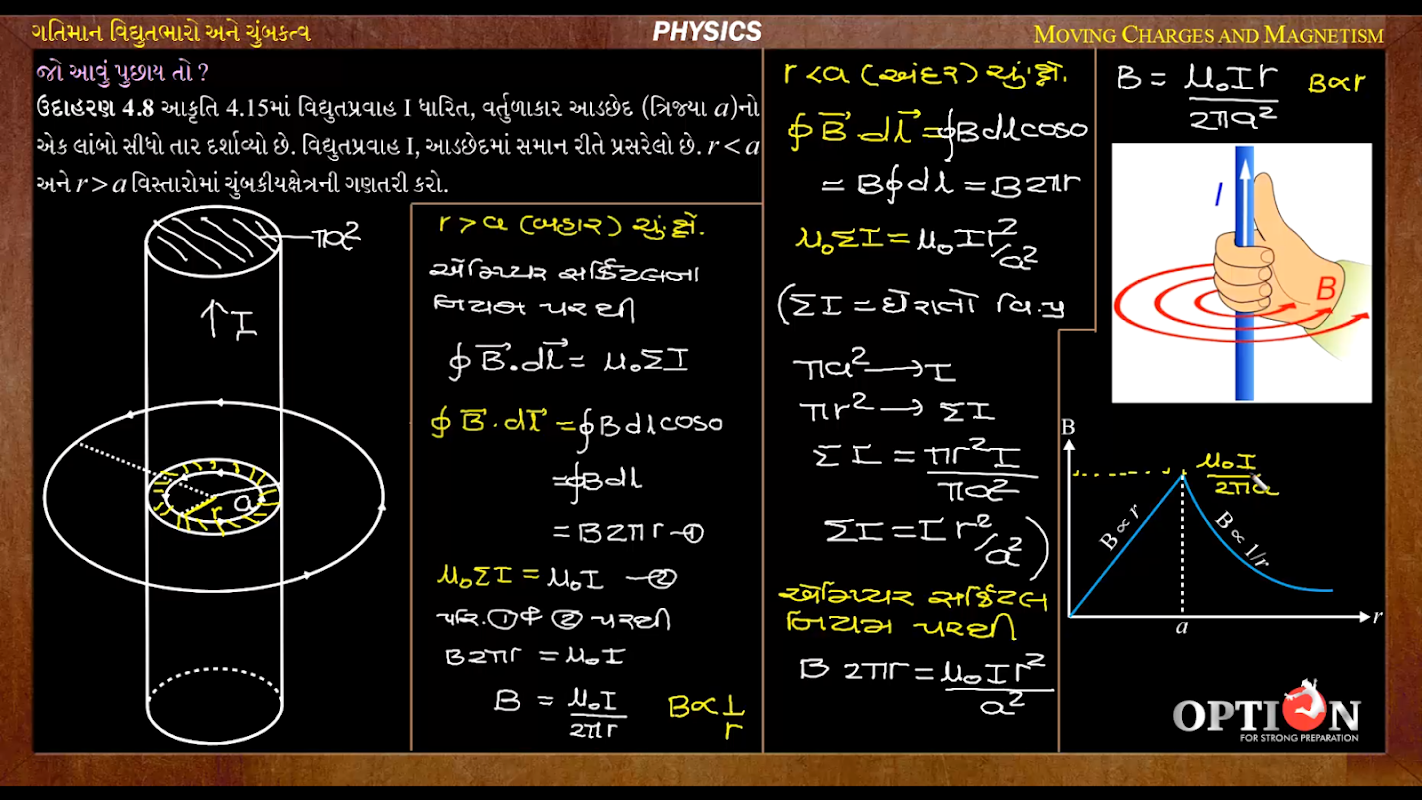 ગતિમાન વિદ્યુતભારો અને ચુંબકત્વ
PHYSICS
MOVING CHARGES AND MAGNETISM
જો આવું પુછાય તો ?
ઉદાહરણ 4.8 આકૃતિ 4.15માં વિદ્યુતપ્રવાહ I ધારિત, વર્તુળાકાર આડછેદ (ત્રિજ્યા a)નો
એક લાંબો સીધો તાર દર્શાવ્યો છે. વિદ્યુતપ્રવાહ I, આડછેદમાં સમાન રીતે પ્રસરેલો છે. r < a
અને r > a વિસ્તારોમાં ચુંબકીયક્ષેત્રની ગણતરી કરો.
πa²
↑I
a
r
r > a (બહાર) ચું.ક્ષે.
એમ્પિયર સર્કિટલના
નિયમ પરથી
∮B⃗.dl⃗ = μ₀ΣI
∮B⃗.dl⃗ = ∮Bdlcos0
=∮Bdl
= B2πr –①
μ₀ΣI = μ₀I –②
પરિ.①ને ② પરથી
B2πr = μ₀I
B = μ₀I/2πr B∝1/r
r<a (અંદર) ચું.ક્ષે.
∮B⃗.dl⃗ =∮Bdlcos0
= B∮dl = B2πr
μ₀ΣI = μ₀Ir²/a²
(ΣI = ઘેરાતો વિ.પ્ર
πa² → I
πr² → ΣI
ΣI = πr²I/πa²
ΣI = I r²/a²)
એમ્પિયર સર્કિટલ
નિયમ પરથી
B 2πr = μ₀Ir²/a²
B = μ₀Ir/2πa² B∝r
I
B
B
μ₀I/2πa
B ∝ r
B ∝ 1/r
a
r
OPTION
FOR STRONG PREPARATION